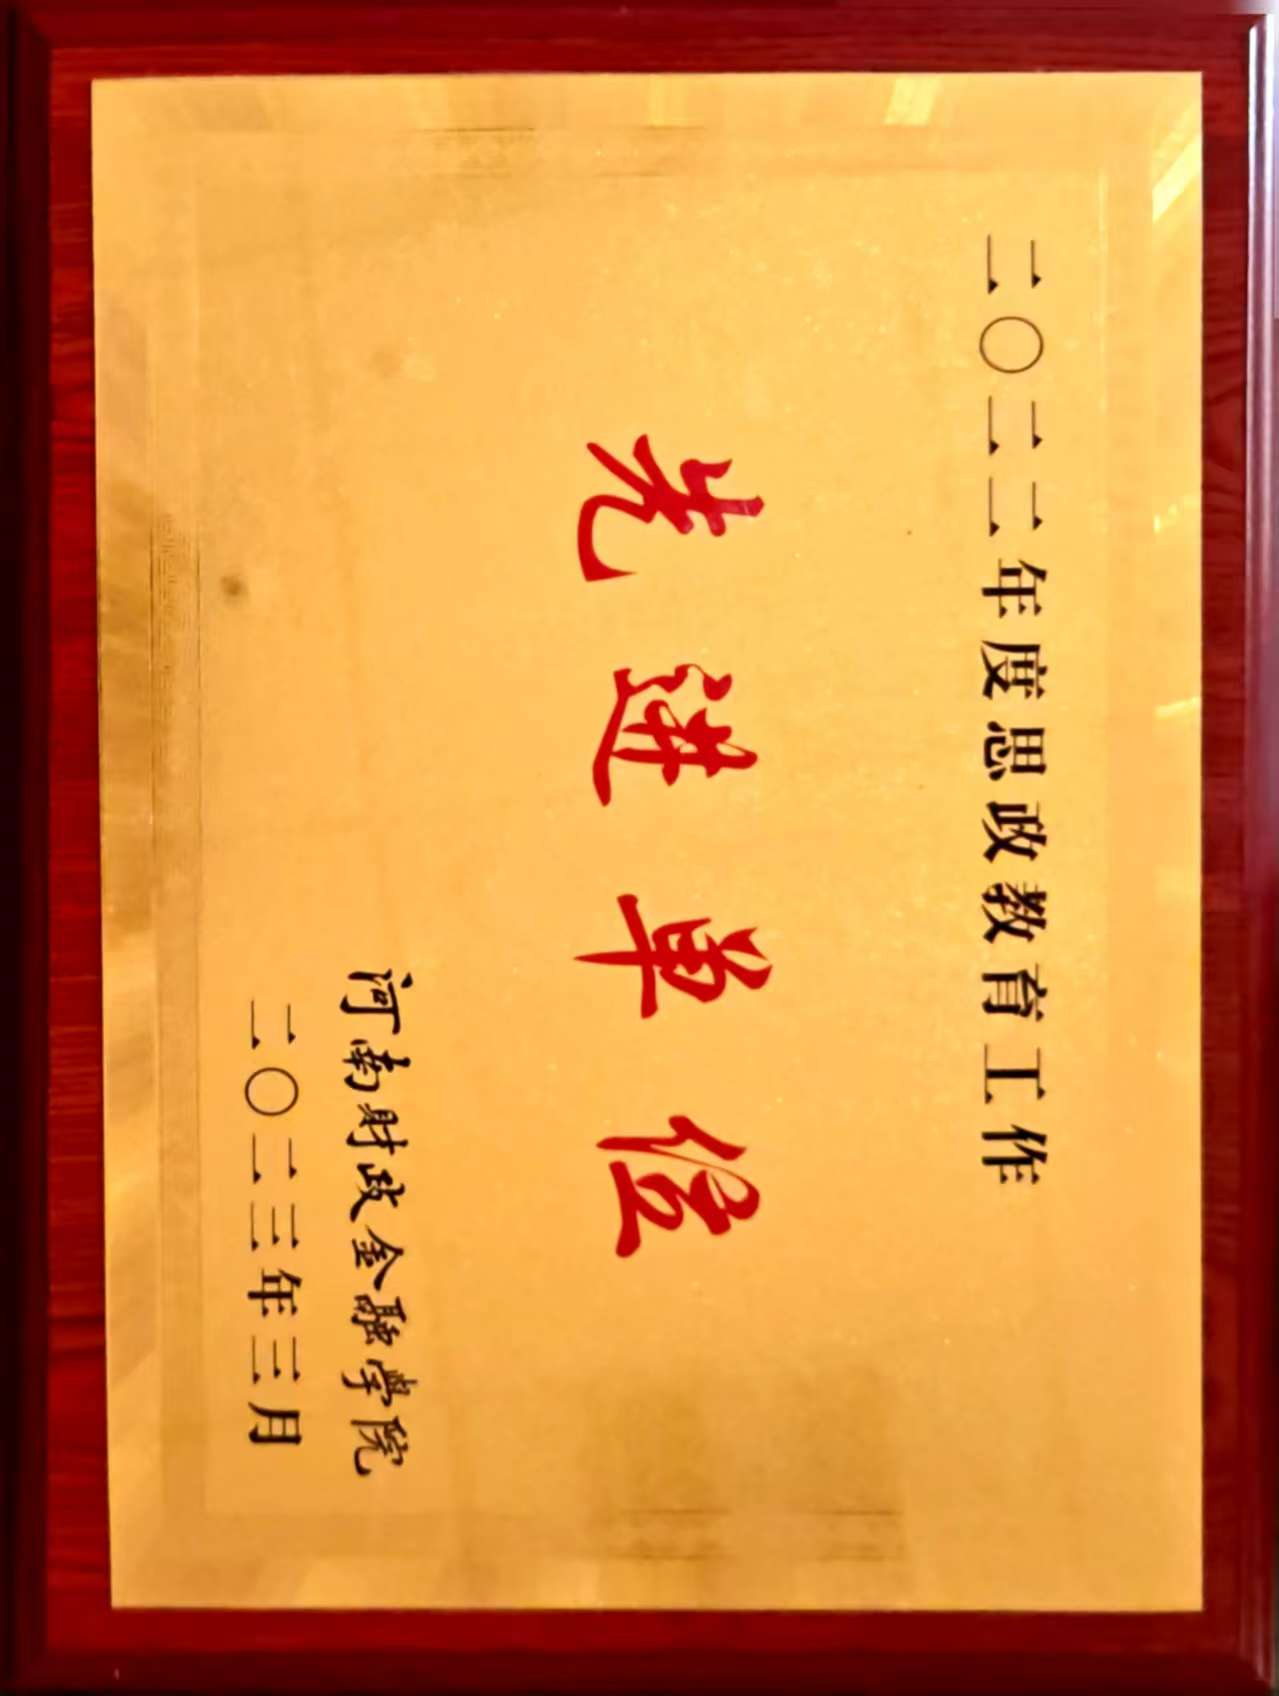 二〇二二年度思政教育工作
先进单位
河南财政金融学院
二〇二三年三月